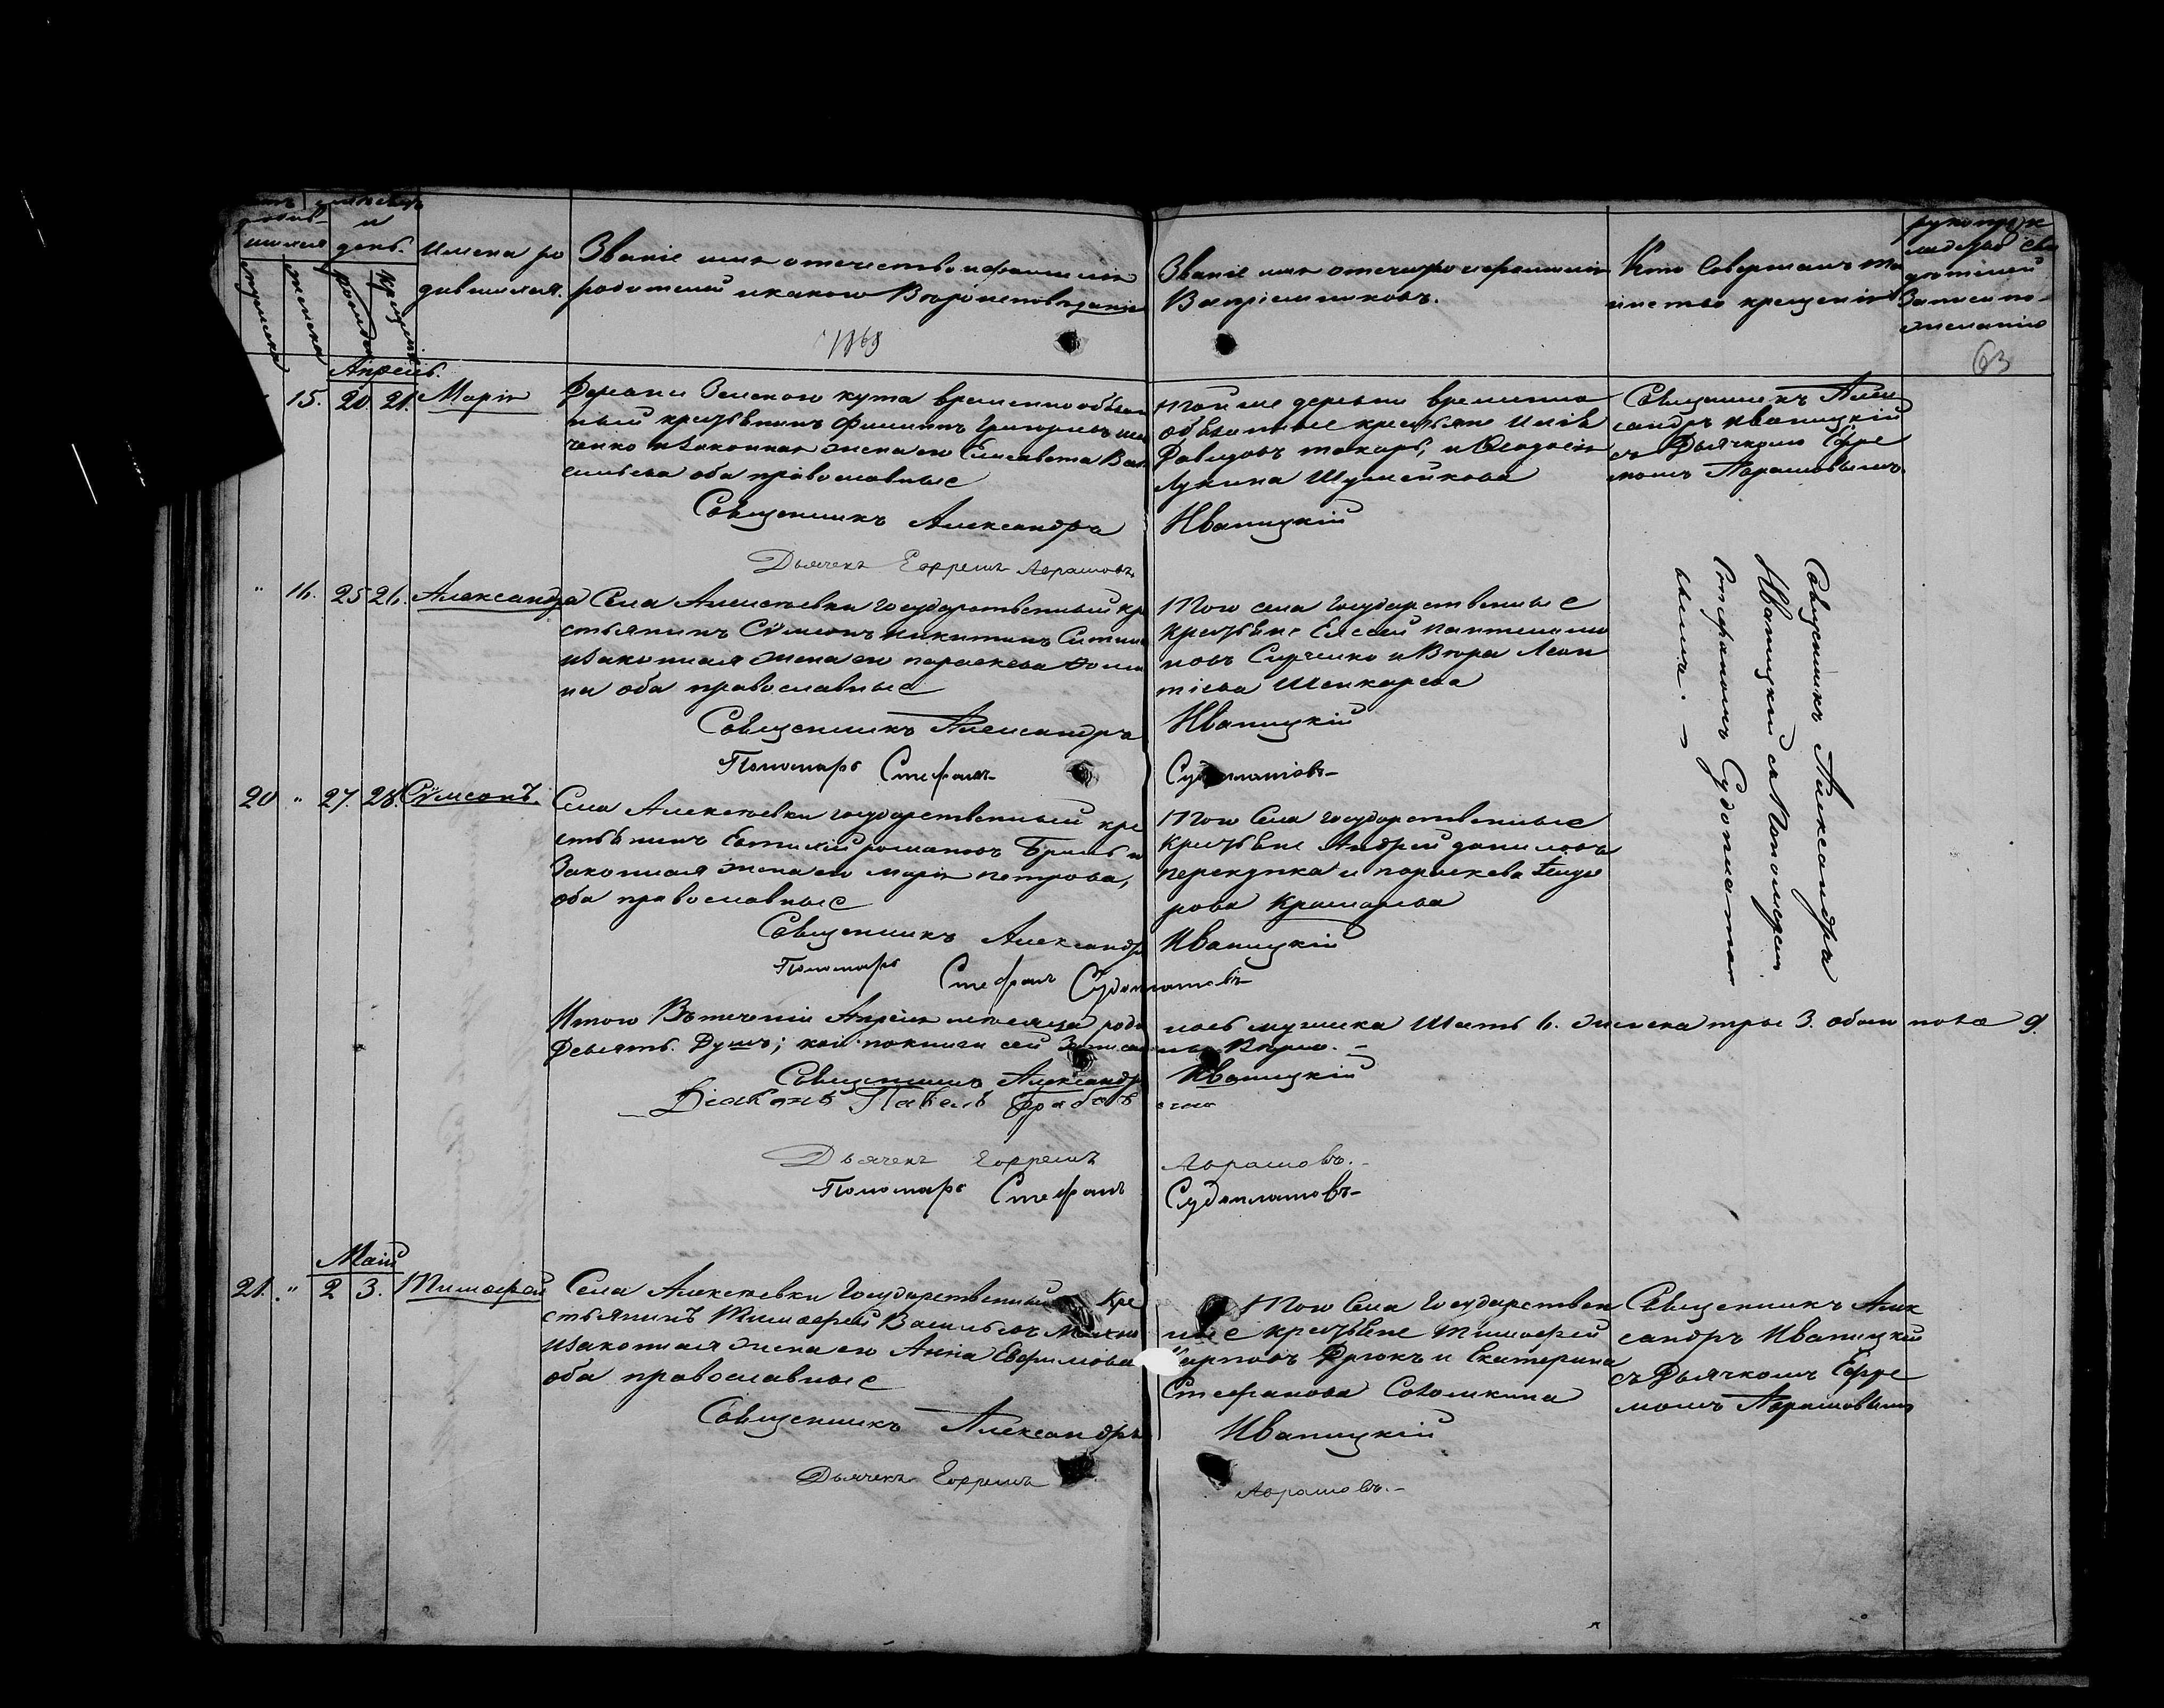 родив-
шихся
мужеска
женска
и
день.
рожденія
крещенія
Имена ро
дившихся.
Званіе имя отечество и фамилія
родителей и какого Вѣроисповѣданія
1868
Званіе имя отечество и фамилія
Воспріемниковъ.
Кто Совершалъ та
инство крещенія
рукоприк
Записи по-
желанію
63
Апрель.
15. 20. 21. Марія
Деревни Землекого кута временно обязан
ный крестьянинъ Филиппъ Григорьевъ
ченко и законная жена его Елисавета Ва
сильева оба православные
Той же деревни временно
обязанные крестьяне
Давидовъ токарь, и Феодосія
Лукина Шумейкова
Священникъ Алек
сандръ Иваницкій
съ Дьячкомъ Ефре
момъ Аврамовымъ
Священникъ Александръ Иваницкій
Дьячекъ Ефремъ Аврамовъ
" 16. 25 26. Александра
Села Алексѣевки государственный кре
стьянинъ Сѵмеонъ Никитинъ
и законная жена его Параскева
на оба православные
Того села государственные
крестьяне Елисей Пантелеимо
новъ и Вѣра Леон
тіева Шинкарева
Священникъ Александръ
Иваницкій съ Пономаремъ
Стефаномъ Судоплато
вымъ. -
Священникъ Александръ Иваницкій
Пономарь Стефанъ Судоплатовъ-
20 " 27 28. Сѵмеонъ.
Села Алексѣевки государственный кре
стьянинъ Евтихій Романовъ и
Законная жена его Марія Петрова,
оба православные
Того Села государственные
крестьяне Андрей Даниловъ
Перекупка и Параскева Ѳеодо
рова Крамарева
Священникъ Александръ Иваницкій
Пономарь Стефанъ Судоплатовъ-
Итого Въ теченіи Апреля месяца роди лось мужеска Шесть 6. женска три 3. обоего пола 9.
Девять. Душъ; кои по книге сей Записа ны Вѣрно. -
Священникъ Александръ Иваницкій
Діаконъ Павелъ
Дьячекъ Ефремъ Аврамовъ.-
Пономарь Стефанъ Судоплатовъ-
Маій
21. " 2 3. Тимофей
Села Алексѣевки Государственный Кре
стьянинъ Тимофей Васильевъ
и законная жена его Анна Ефимова
оба православные
Того Села Государствен
ные крестьяне Тимофей
Карповъ Дрюкъ и Екатерина
Стефанова Соломкина
Священникъ Алек
сандръ Иваницкій
съ Дьячкомъ Ефре
момъ Аврамовымъ
Священникъ Александръ Иваницкій
Дьячекъ Ефремъ Аврамовъ.-